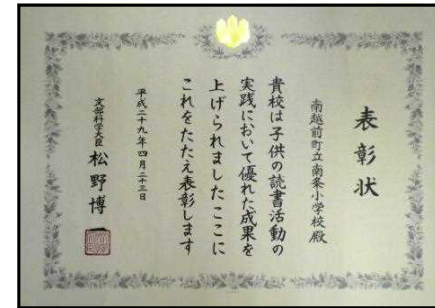 表彰状
南越前町立南条小学校殿
貴校は子供の読書活動の
実践において優れた成果を
上げられましたここに
これをたたえ表彰します
平成二十九年四月二十三日
文部科学大臣 松野博一